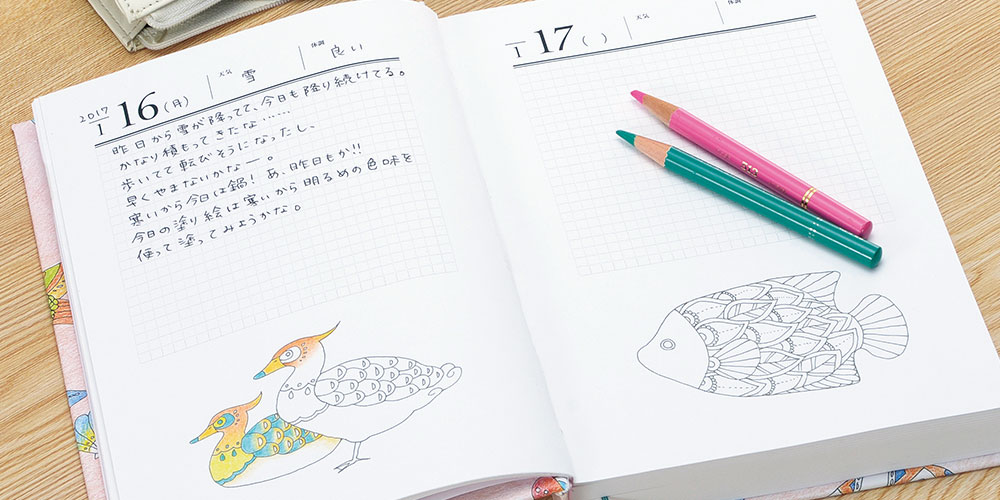 2017 1 16 (月) 天気 雪 体調 良い
昨日から雪が降ってて、今日も降り続けてる。
かなり積もってきたな……
歩いてて転びそうになったし、
早くやまないかなー。
寒いから今日は鍋！あ、昨日もか!!
今日の塗り絵は寒いから明るめの色味を
使って塗ってみようかな。
1 17 ( ) 天気 体調